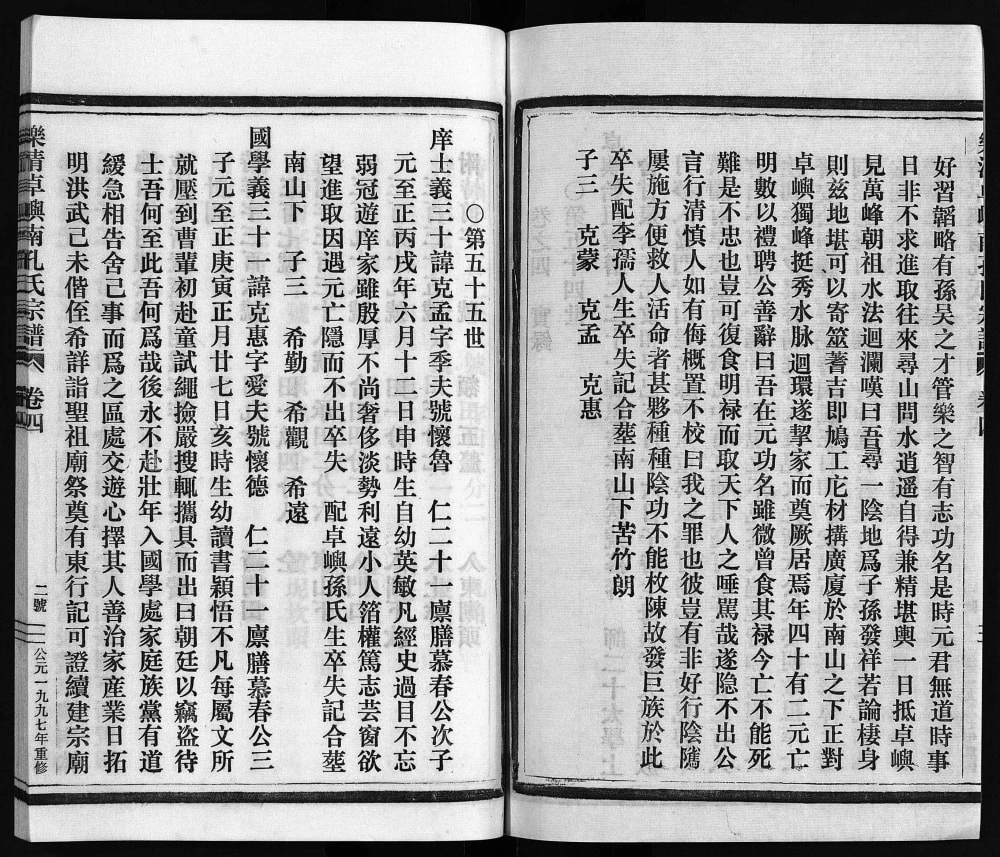 好習韜略有孫吳之才管樂之智有志功名是時元君無道時事
日非不求進取往來尋山問水逍遥自得兼精堪輿一日抵卓嶼
見萬峰朝祖水法迴瀾嘆曰吾尋一陰地爲子孫發祥若論棲身
則兹地堪可以寄筮蓍吉即鳩工庀材搆廣厦於南山之下正對
卓嶼獨峰挺秀水脉迴環遂挈家而奠厥居焉年四十有二元亡
明數以禮聘公善辭曰吾在元功名雖微曾食其禄今亡不能死
難是不忠也豈可復食明禄而取天下人之唾駡哉遂隐不出公
言行清慎人如有侮概置不校曰我之罪也彼豈有非好行陰隲
屢施方便救人活命者甚夥種種陰功不能枚陳故發巨族於此
卒失配李孺人生卒失記合塟南山下苦竹朗
子三　克蒙　克孟　克惠
〇第五十五世
庠士義三十諱克孟字季夫號懷魯　仁二十廪膳慕春公次子
元至正丙戌年六月十三日申時生自幼英敏凡經史過目不忘
弱冠遊庠家雖殷厚不尚奢侈淡勢利遠小人箔權篤志芸窗欲
望進取因遇元亡隱而不出卒失　配卓嶼孫氏生卒失記合塟
南山下　子三　希勤　希觀　希遠
國學義三十一諱克惠字愛夫號懷德　仁二十一廪膳慕春公三
子元至正庚寅正月廿七日亥時生幼讀書穎悟不凡每屬文所
就壓到曹輩初赴童試繩撿嚴搜輒攜具而出曰朝廷以竊盗待
士吾何至此吾何爲哉後永不赴壯年入國學處家庭族黨有道
緩急相告舍己事而爲之區處交遊心擇其人善治家産業日拓
明洪武己未偕侄希詳詣聖祖廟祭奠有東行記可證續建宗廟
樂清卓嶼南孔氏宗譜　卷四
二號
公元一九九七年重修